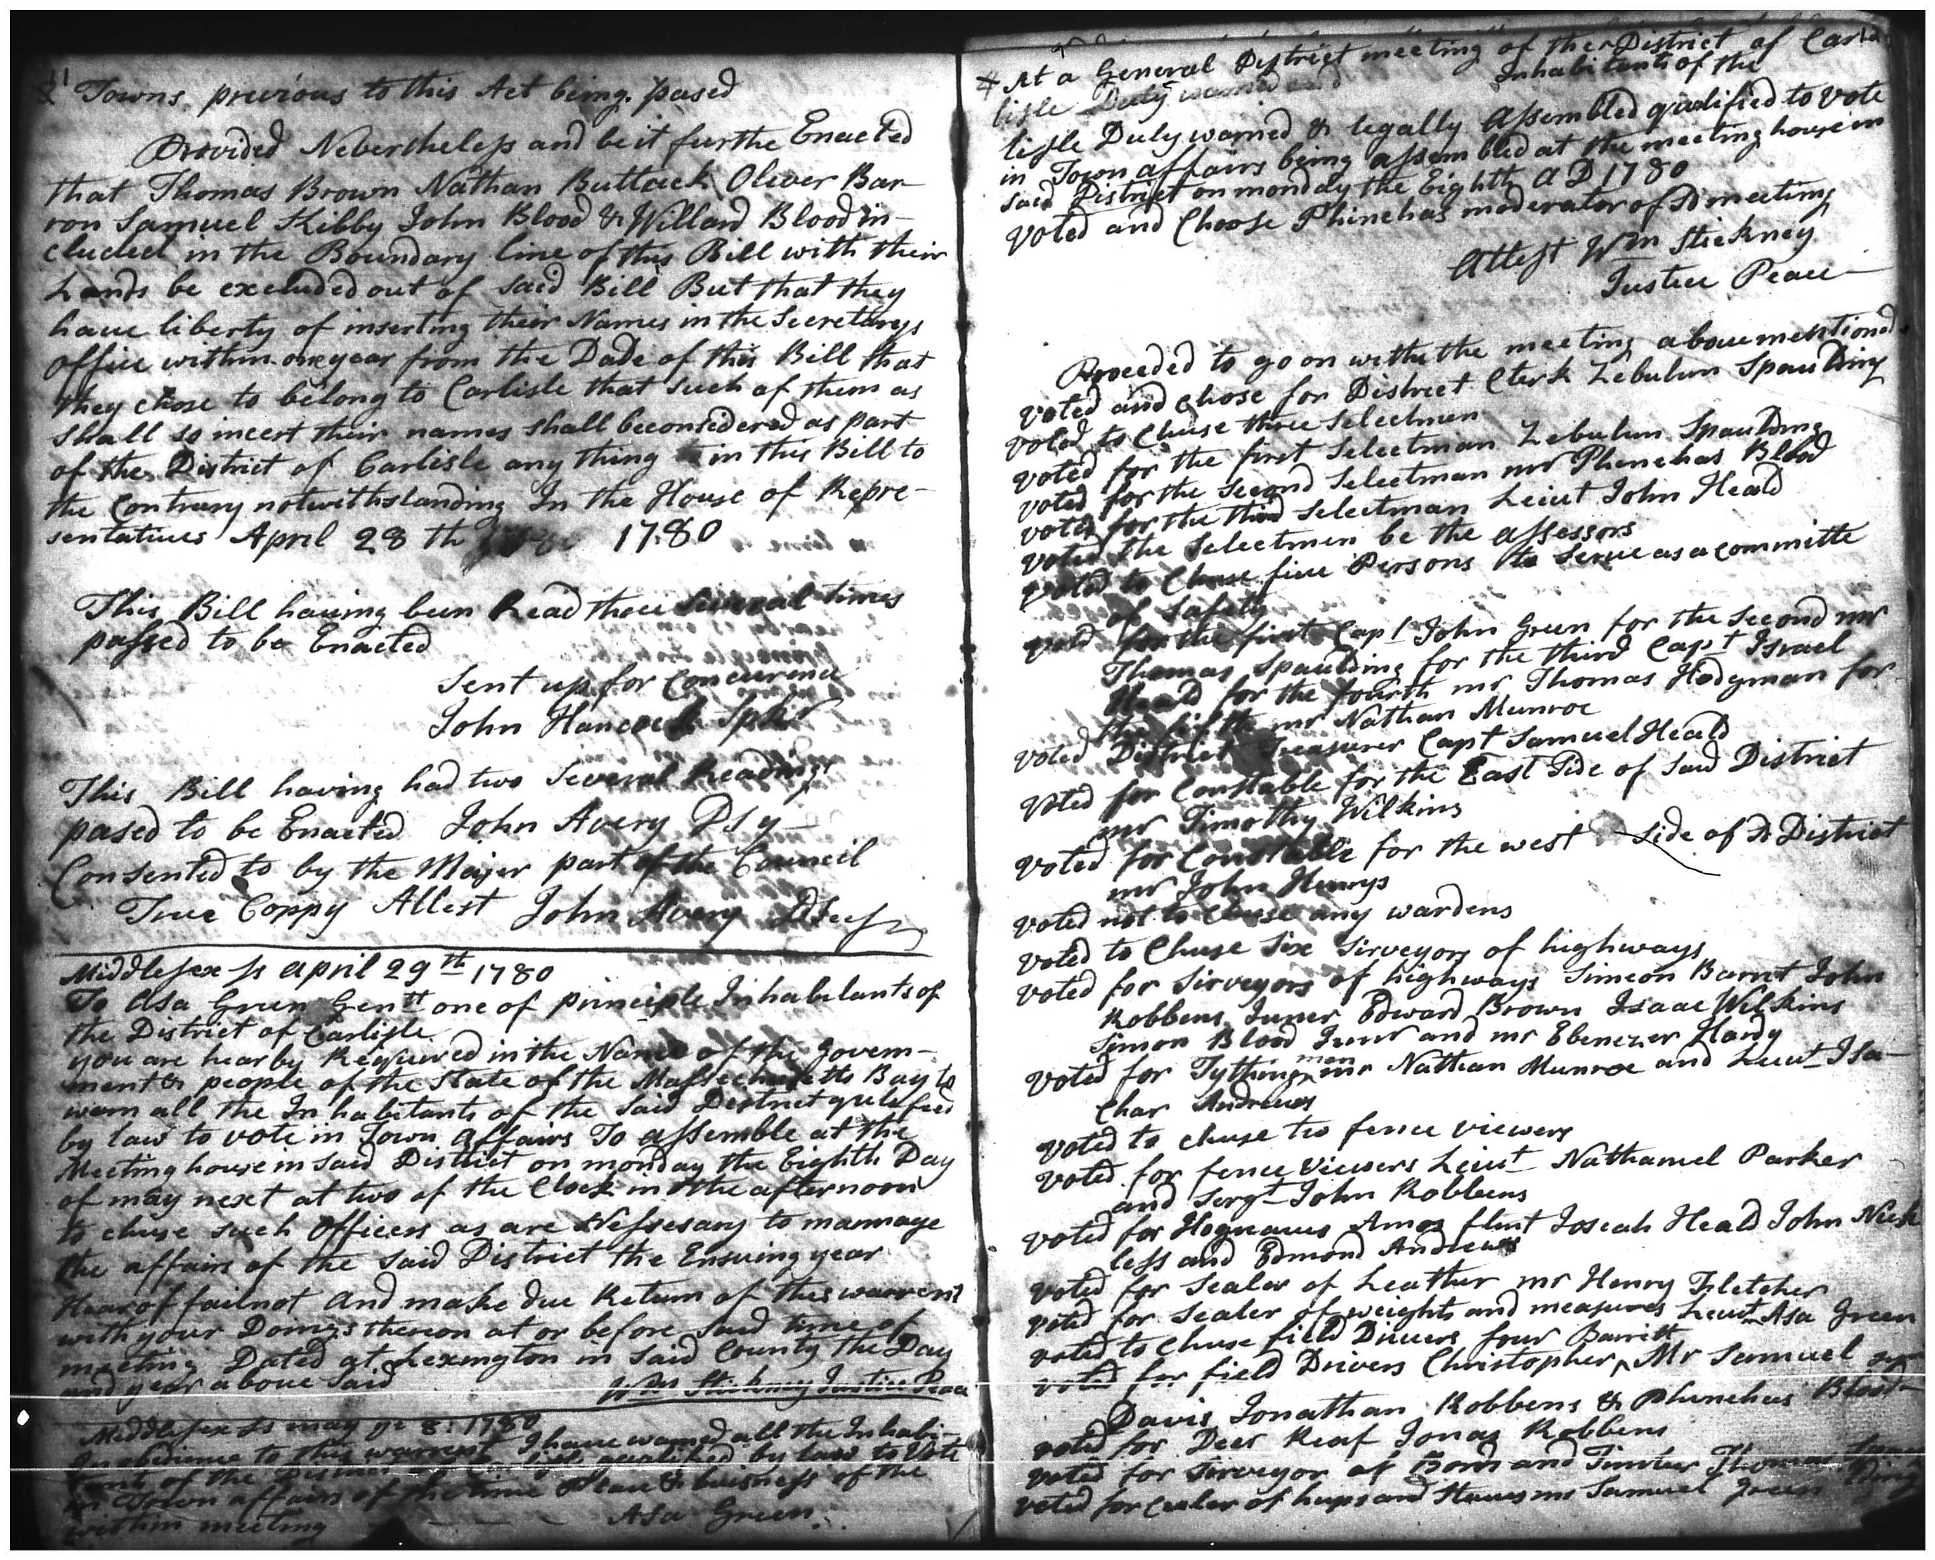 11
Towns previous to this Act being pased
Provided Nevertheless and be it furthe Enacted
that Thomas Brown Nathan Buttack Oliver Bar-
ron Samuel Kibby John Blood & Willard Blood in-
cluded in the Boundary line of this Bill with their
Lands be excluded out of said Bill But that they
have liberty of inserting their Names in the Secretarys
office within one year from the Dade of this Bill that
they chose to belong to Carlisle that such of them as
shall so incert their names shall be considered as part
of the District of Carlisle any thing in this Bill to
the Contrary notwithstanding In the House of Repre-
sentatives April 28 th 1780
This Bill having been Read three several times
passed to be Enacted
Sent up for Concurence
John Hancock Spkr
This Bill having had two Several Readings
pased to be Enacted John Avery D Sy
Consented to by the Majer part of the Council
True Coppy Attest John Avery D Secy
Middlesex ss april 29th 1780
To Asa Green Gentt one of principle Inhabitants of
the District of Carlisle
you are hearby Requiered in the Name of the Govern-
ment & people of the State of the Massechusetts Bay to
warn all the Inhabitants of the Said District qulefied
by law to vote in Town affairs To assemble at the
Meeting house in said District on monday the Eighth Day
of may next at two of the Clock in the afternoon
to chuse such officers as are Nessesary to mannage
the affairs of the said District the Ensuing year
Hear of fail not and make due Return of this warrent
with your Doings thereon at or before said time of
meeting Dated at Lexington in said County the Day
and year above said
Wm Stickney Justice Peace
Middlesex ss may ye 8: 1780
In obedience to this warrent I have warned all the Inhabi-
tants of the District by law to Vote
in Town affairs of the time Place & buisness of the
within meeting Asa Green
At a General District meeting of the District of Car
Inhabitants of the
lisle Duly warned and
lisle Duly warned & legally Assembled qualified to vote
in Town affairs being assembled at the meeting house in
said District on monday the Eighth A D 1780
Voted and Choose Phinehas moderator of sd meeting
Attest Wm Stickney
Justice Peace
Proceeded to go on with the meeting above mentioned
voted and chose for District Clerk Zebulun Spaulding
voted to Chuse three Selectmen
voted for the first Selectman Zebulun Spaulding
voted for the Second Selectman mr Phinehas Blood
voted for the third Selectman Leiut John Heald
voted the Selectmen be the assessors
voted to Chuse five Persons to Serve as a committe
of Safety
voted for the first Capt John Green for the Second mr
Thomas Spaulding for the third Capt Israel
Heald for the fourth mr Thomas Hodgman for
the fifth mr Nathan Munroe
voted District Treasurer Capt Samuel Heald
voted for Constable for the East Side of said District
mr Timothy Wilkins
voted for Constable for the west side of sd District
mr John Henrys
voted not to Chuse any wardens
voted to Chuse Six Sirveyors of highways
voted for Sirveyors of highways Simeon Barrit John
Robbens Juner Edward Brown Isaac Wilkins
Simon Blood Junr and mr Ebenezer Hardy
men
voted for Tything mr Nathan Munroe and Leiut Isa-
char Andrews
voted to chuse two fence viewers
voted for fence viewers Leiut Nathaniel Parker
and Sergt John Robbens
voted for Hogreaves Amos flint Joseah Heald John Nick
less and Edmond Andrews
voted for Sealer of Leather mr Henry Fletcher
voted for Sealer of weights and measures Leiut Asa Green
voted to Chuse field Drivers four
Barritt
voted for field Drivers Christopher Mr Samuel
Davis Jonathan Robbens & Phinehas Blood
voted for Deer Reaf Jonas Robbens
voted for Sirveyor of Bords and Timber
voted for Culer of hups and Staves mr Samuel Green